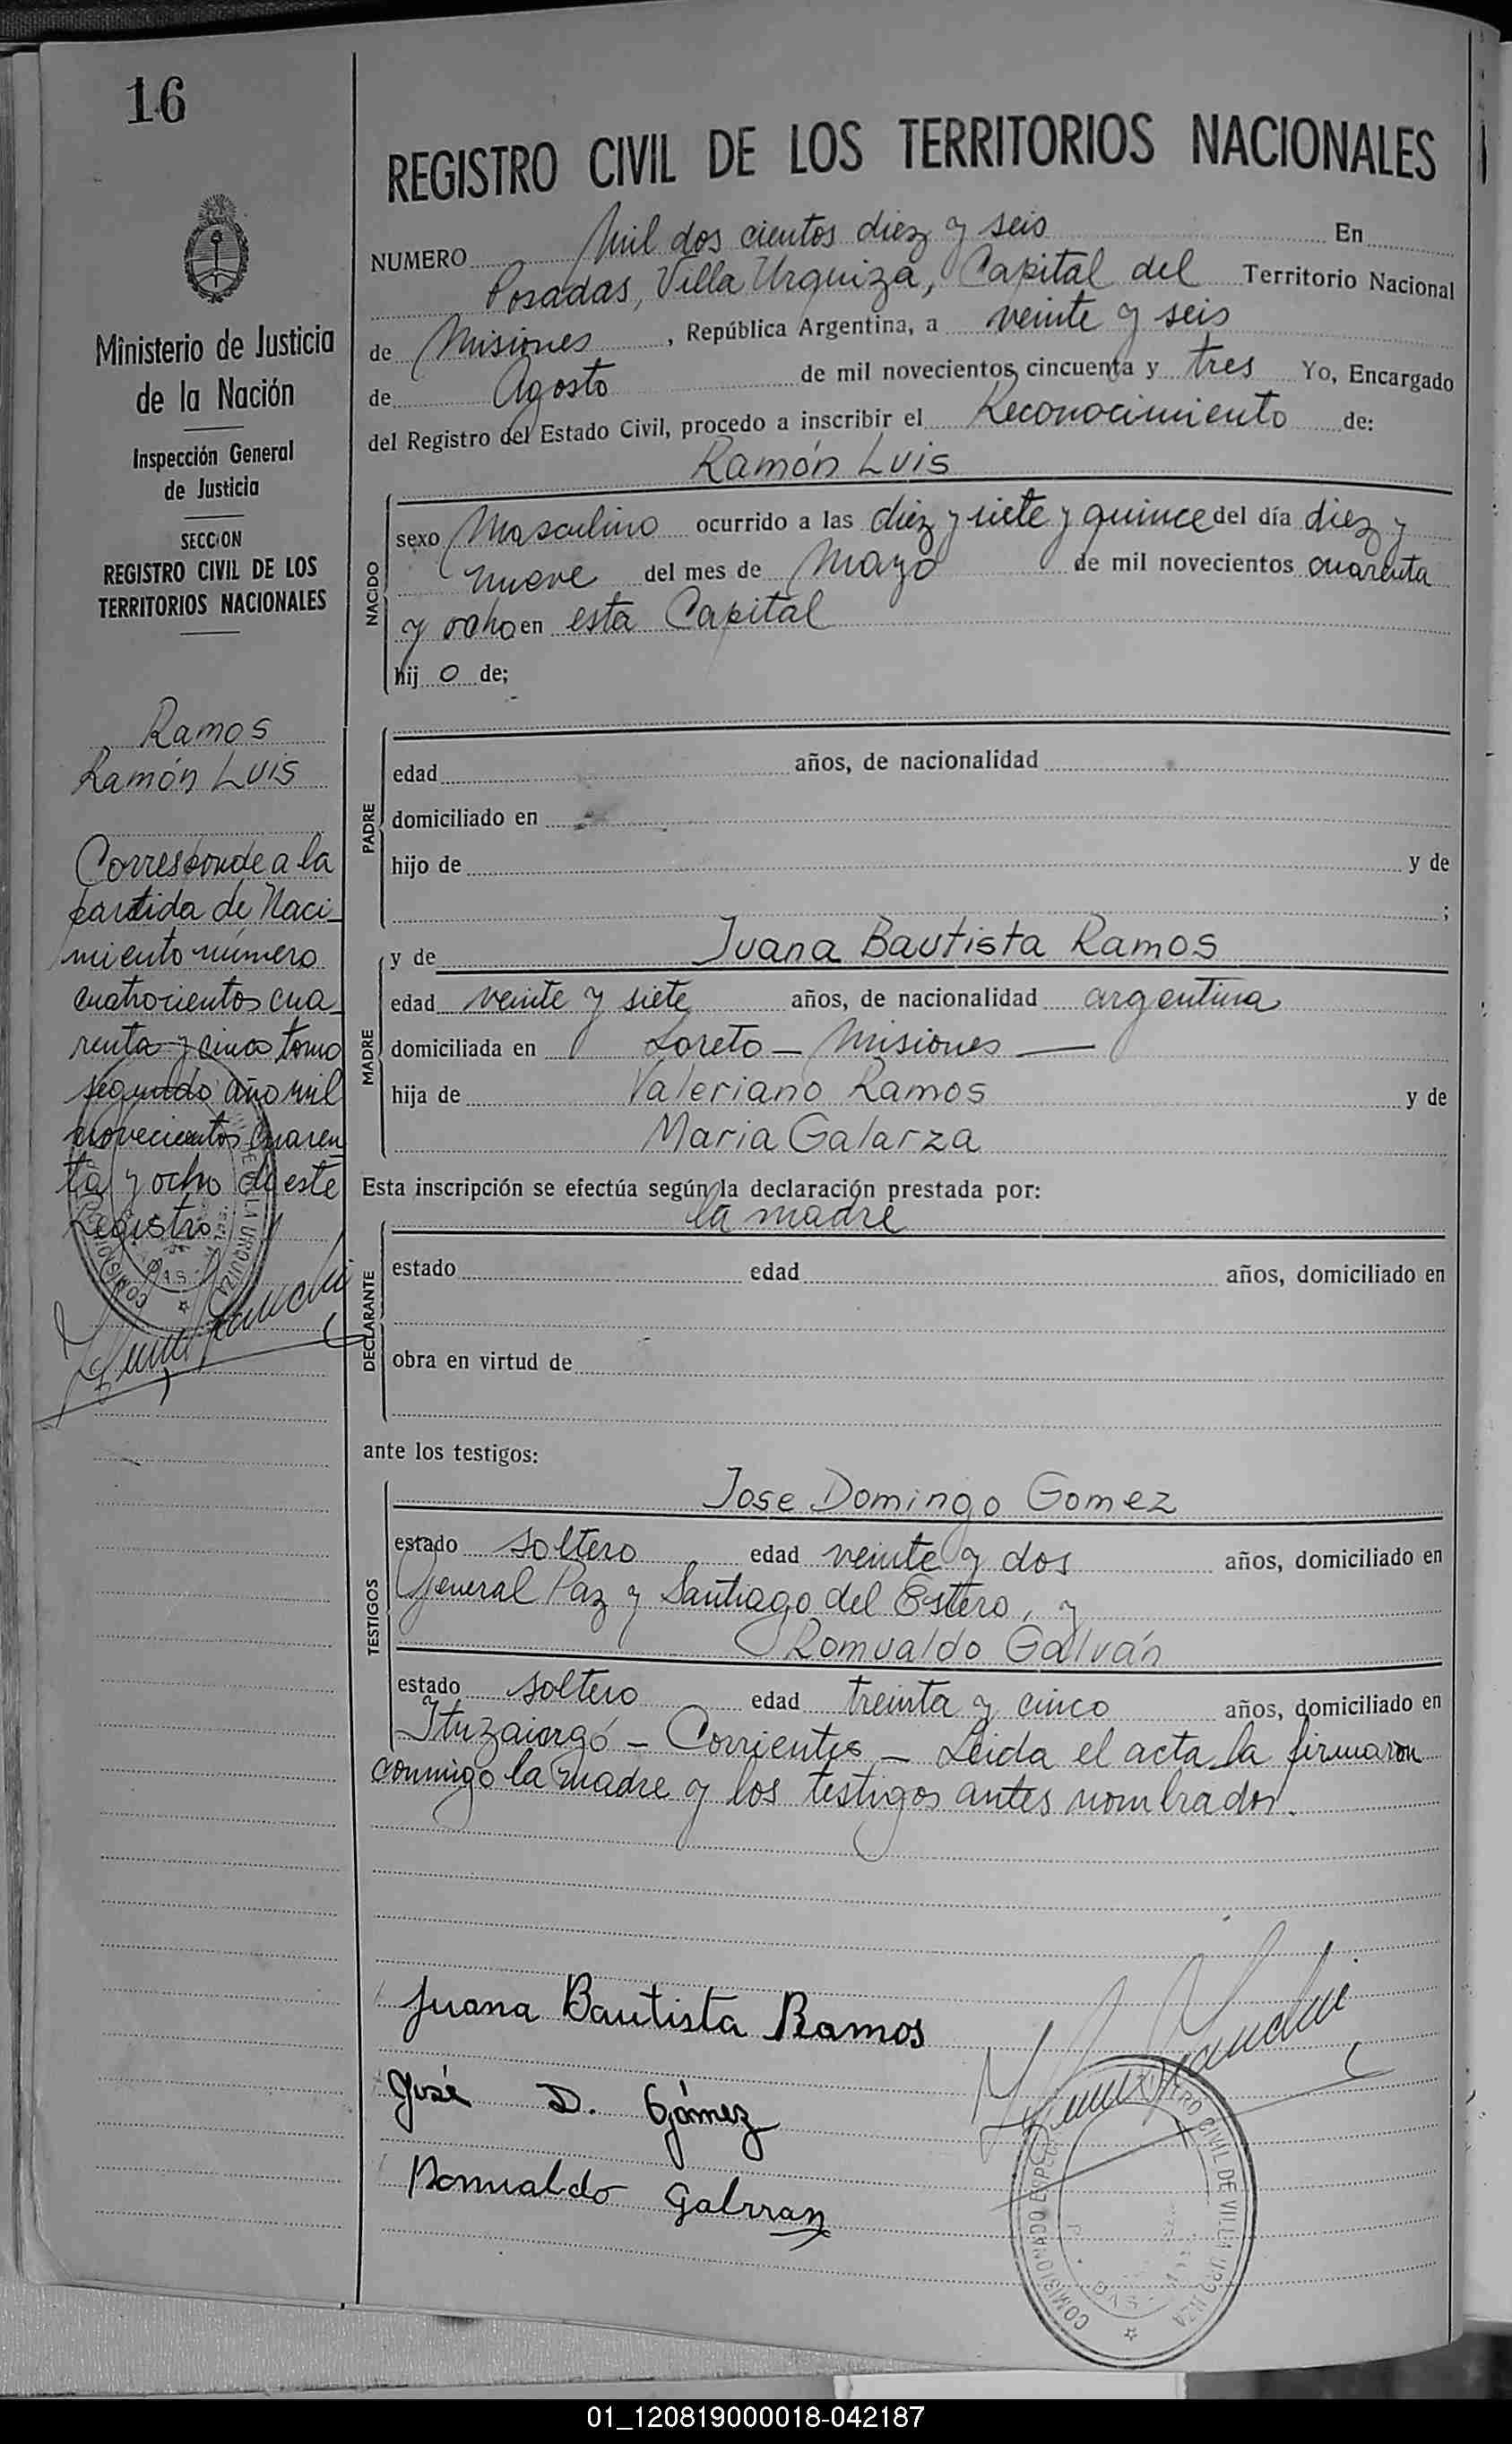 16
Ministerio de Justicia
de la Nación
Inspección General
de Justicia
SECCION
REGISTRO CIVIL DE LOS
TERRITORIOS NACIONALES
Ramos
Ramón Luis
Corresponde a la
partida de Naci-
miento número
cuatrocientos cua-
renta y cinco tomo
segundo año mil
novecientos cuaren
ta y ocho de este
Registro.
REGISTRO CIVIL DE LOS TERRITORIOS NACIONALES
NUMERO Mil dos cientos diez y seis En
Posadas, Villa Urquiza, Capital del Territorio Nacional
de Misiones, República Argentina, a veinte y seis
de Agosto de mil novecientos cincuenta y tres Yo, Encargado
del Registro del Estado Civil, procedo a inscribir el Reconocimiento de:
Ramón Luis
NACIDO
sexo Masculino ocurrido a las diez y siete y quince del día diez y
nueve del mes de Mayo de mil novecientos cuarenta
y ocho en esta Capital
hij o de;
PADRE
edad años, de nacionalidad
domiciliado en
hijo de y de
;
MADRE
y de Juana Bautista Ramos
edad veinte y siete años, de nacionalidad argentina
domiciliada en Loreto - Misiones —
hija de Valeriano Ramos y de
Maria Galarza
Esta inscripción se efectúa según la declaración prestada por:
la madre
DECLARANTE
estado edad años, domiciliado en
obra en virtud de
ante los testigos:
TESTIGOS
Jose Domingo Gomez
estado soltero edad veinte y dos años, domiciliado en
General Paz y Santiago del Estero, y
Romualdo Galván
estado soltero edad treinta y cinco años, domiciliado en
Ituzaingó - Corrientes - Leida el acta la firmaron
conmigo la madre y los testigos antes nombrados.
Juana Bautista Ramos
José D. Gómez
Romualdo Galvan
COMISIONADO CIVIL DE VILLA URQUIZA
01_120819000018-042187